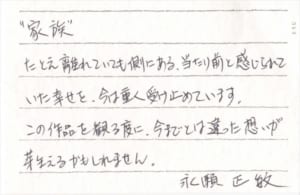 “家族”
たとえ離れていても側にある、当たり前と感じられて
いた幸せを、今は重く受け止めています。
この作品を観る度に、今までとは違った想いが
芽生えるかもしれません。
永瀬 正敏